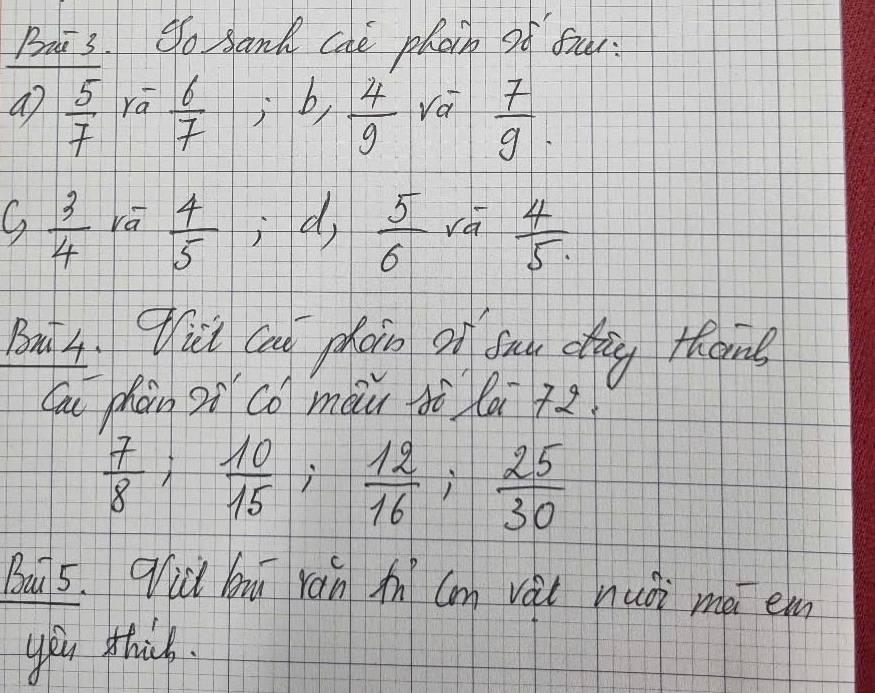 Bài 3. So sánh các phân số sau:
a) 5/7 và 6/7 ; b, 4/9 và 7/9.
c, 3/4 và 4/5 ; d, 5/6 và 4/5.
Bài 4. Viết các phân số sau đây thành
các phân số có mẫu số là 72.
7/8 ; 10/15 ; 12/16 ; 25/30
Bài 5. Viết bài văn tả con vật nuôi mà em
yêu thích.